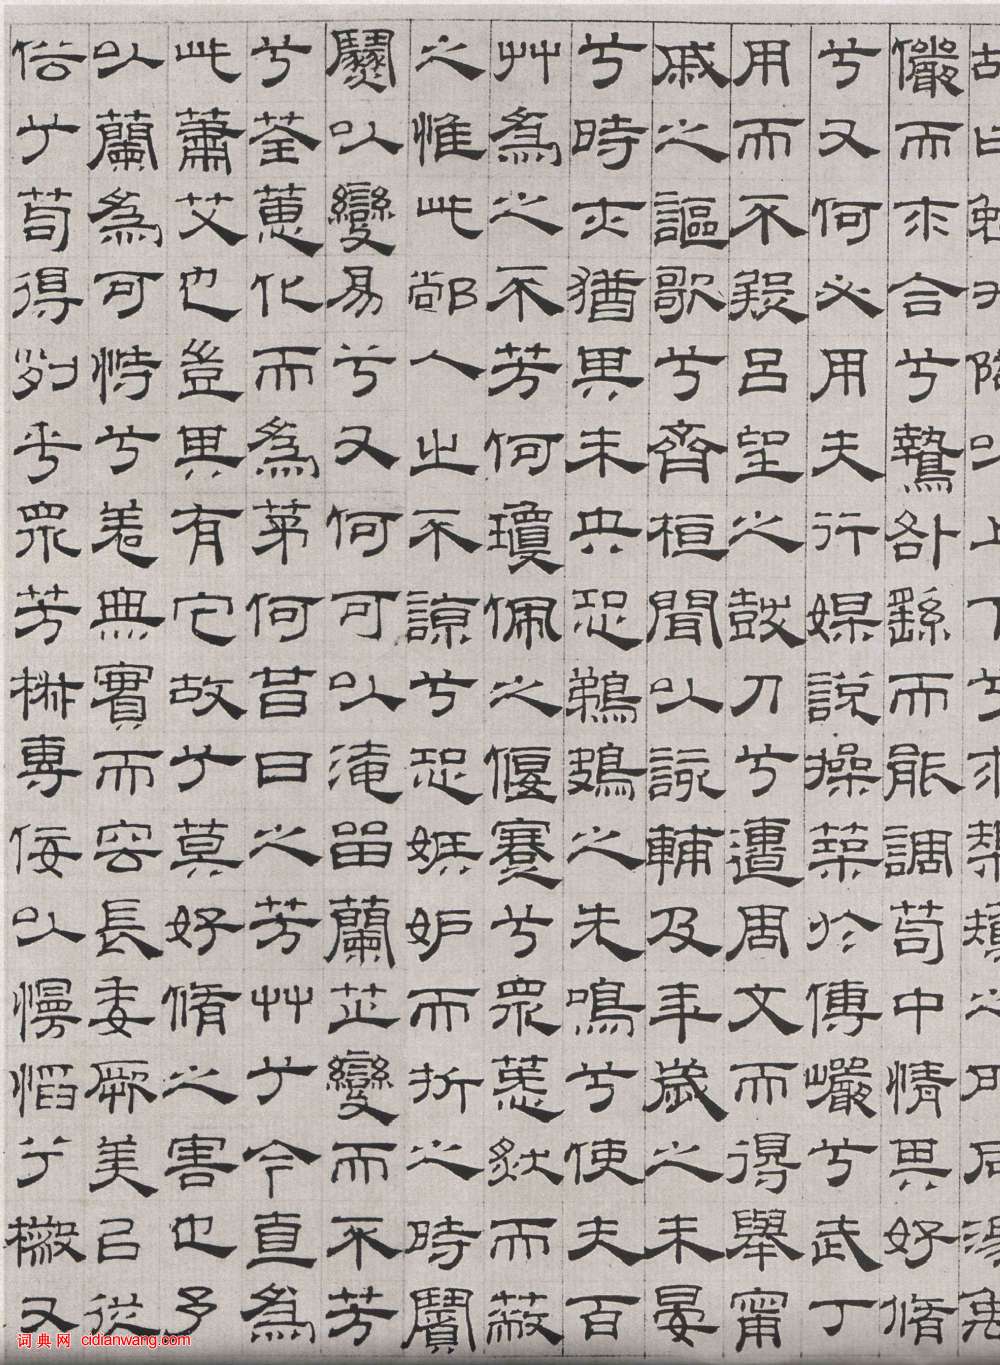 故曰勉升降以上下兮求榘矱之所同湯禹
儼而求合兮摯咎繇而能調苟中情其好脩
兮又何必用夫行媒說操築於傅巖兮武丁
用而不疑呂望之鼓刀兮遭周文而得舉甯
戚之謳歌兮齊桓聞以該輔及年歲之未晏
兮時亦猶其未央恐鵜鴂之先鳴兮使夫百
艸爲之不芳何瓊佩之偃蹇兮眾薆然而蔽
之惟此黨人之不諒兮恐嫉妒而折之時繽
紛以變易兮又何可以淹留蘭芷變而不芳
兮荃蕙化而爲茅何昔日之芳艸兮今直爲
此蕭艾也豈其有它故兮莫好脩之害也予
以蘭爲可恃兮羌無實而容長委厥美以從
俗兮苟得列乎眾芳椒專佞以慢慆兮樧又
词典网 cidianwang.com